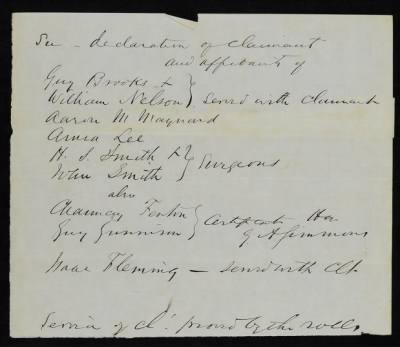 See - declaration of claimant
and affidavits of
Guy Brooks &
William Nelson } served with claimant
Aaron M Maynard
Amea Lee
H. S. Smith &
John Smith } Surgeons
also
Chauncey Fenton
Guy Gunnison } Certificate Hon
G A Simmons
Isaac Fleming - served with Clt
Service of Clt proved by the rolls